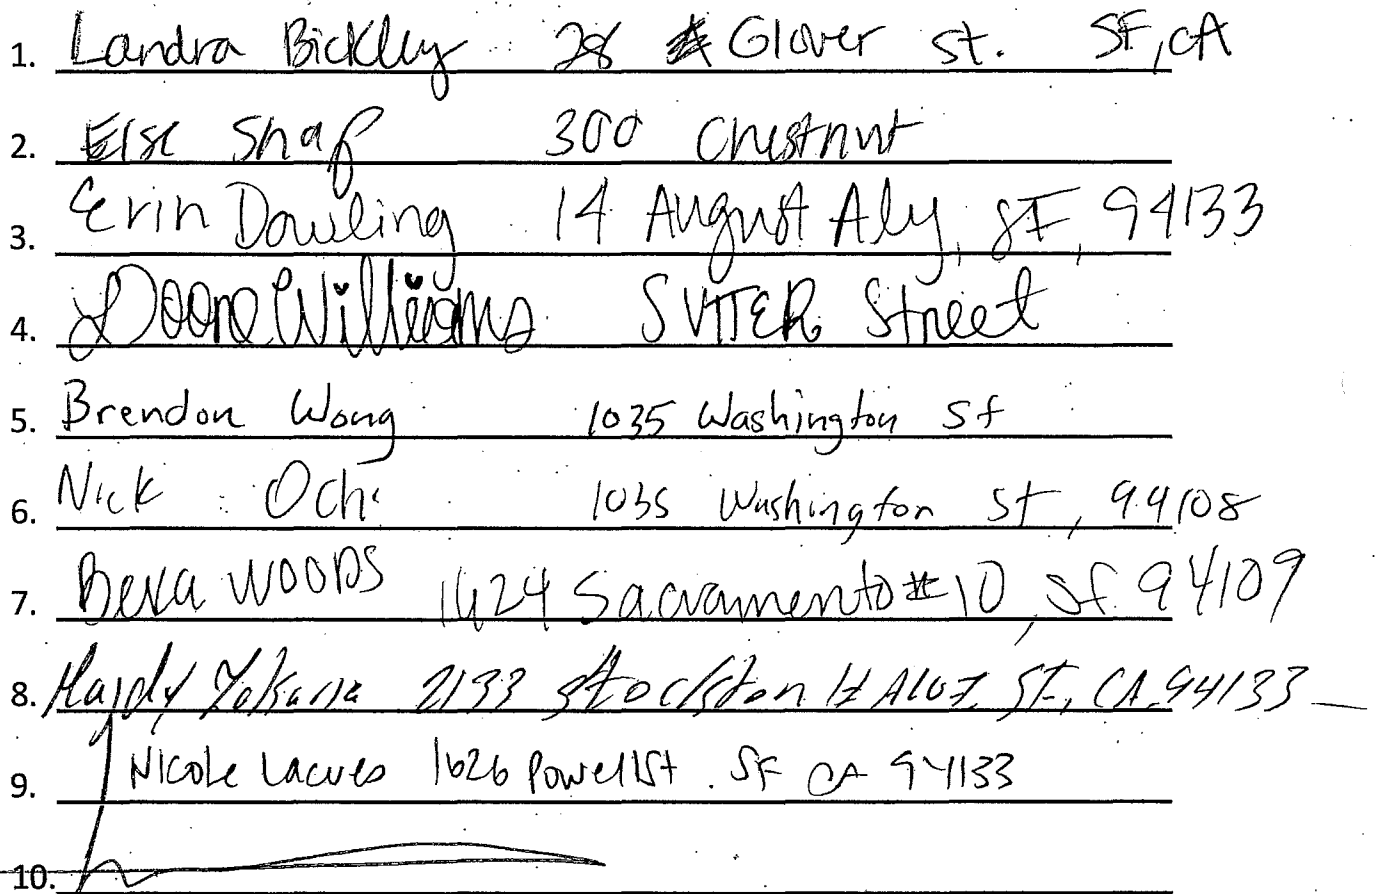 1. Landra Bickley 28 Glover St. SF, CA
2. Else Shaf 300 Chestnut
3. Erin Dowling 14 August Aly, SF, 94133
4. Williams SUTTER Street
5. Brendon Wong 1035 Washington Sf
6. Nick Och 1035 Washington St, 94108
7. WOODS 1424 Sacramento #10, Sf 94109
8. 2133 Stockton SF, CA 94133
9. Nicole Lacues 1626 Powell St. SF CA 94133
10.